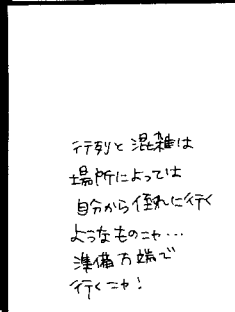 行列と混雑は
場所によっては
自分から倒れに行く
ようなものニャ…
準備万端で
行くニャ！